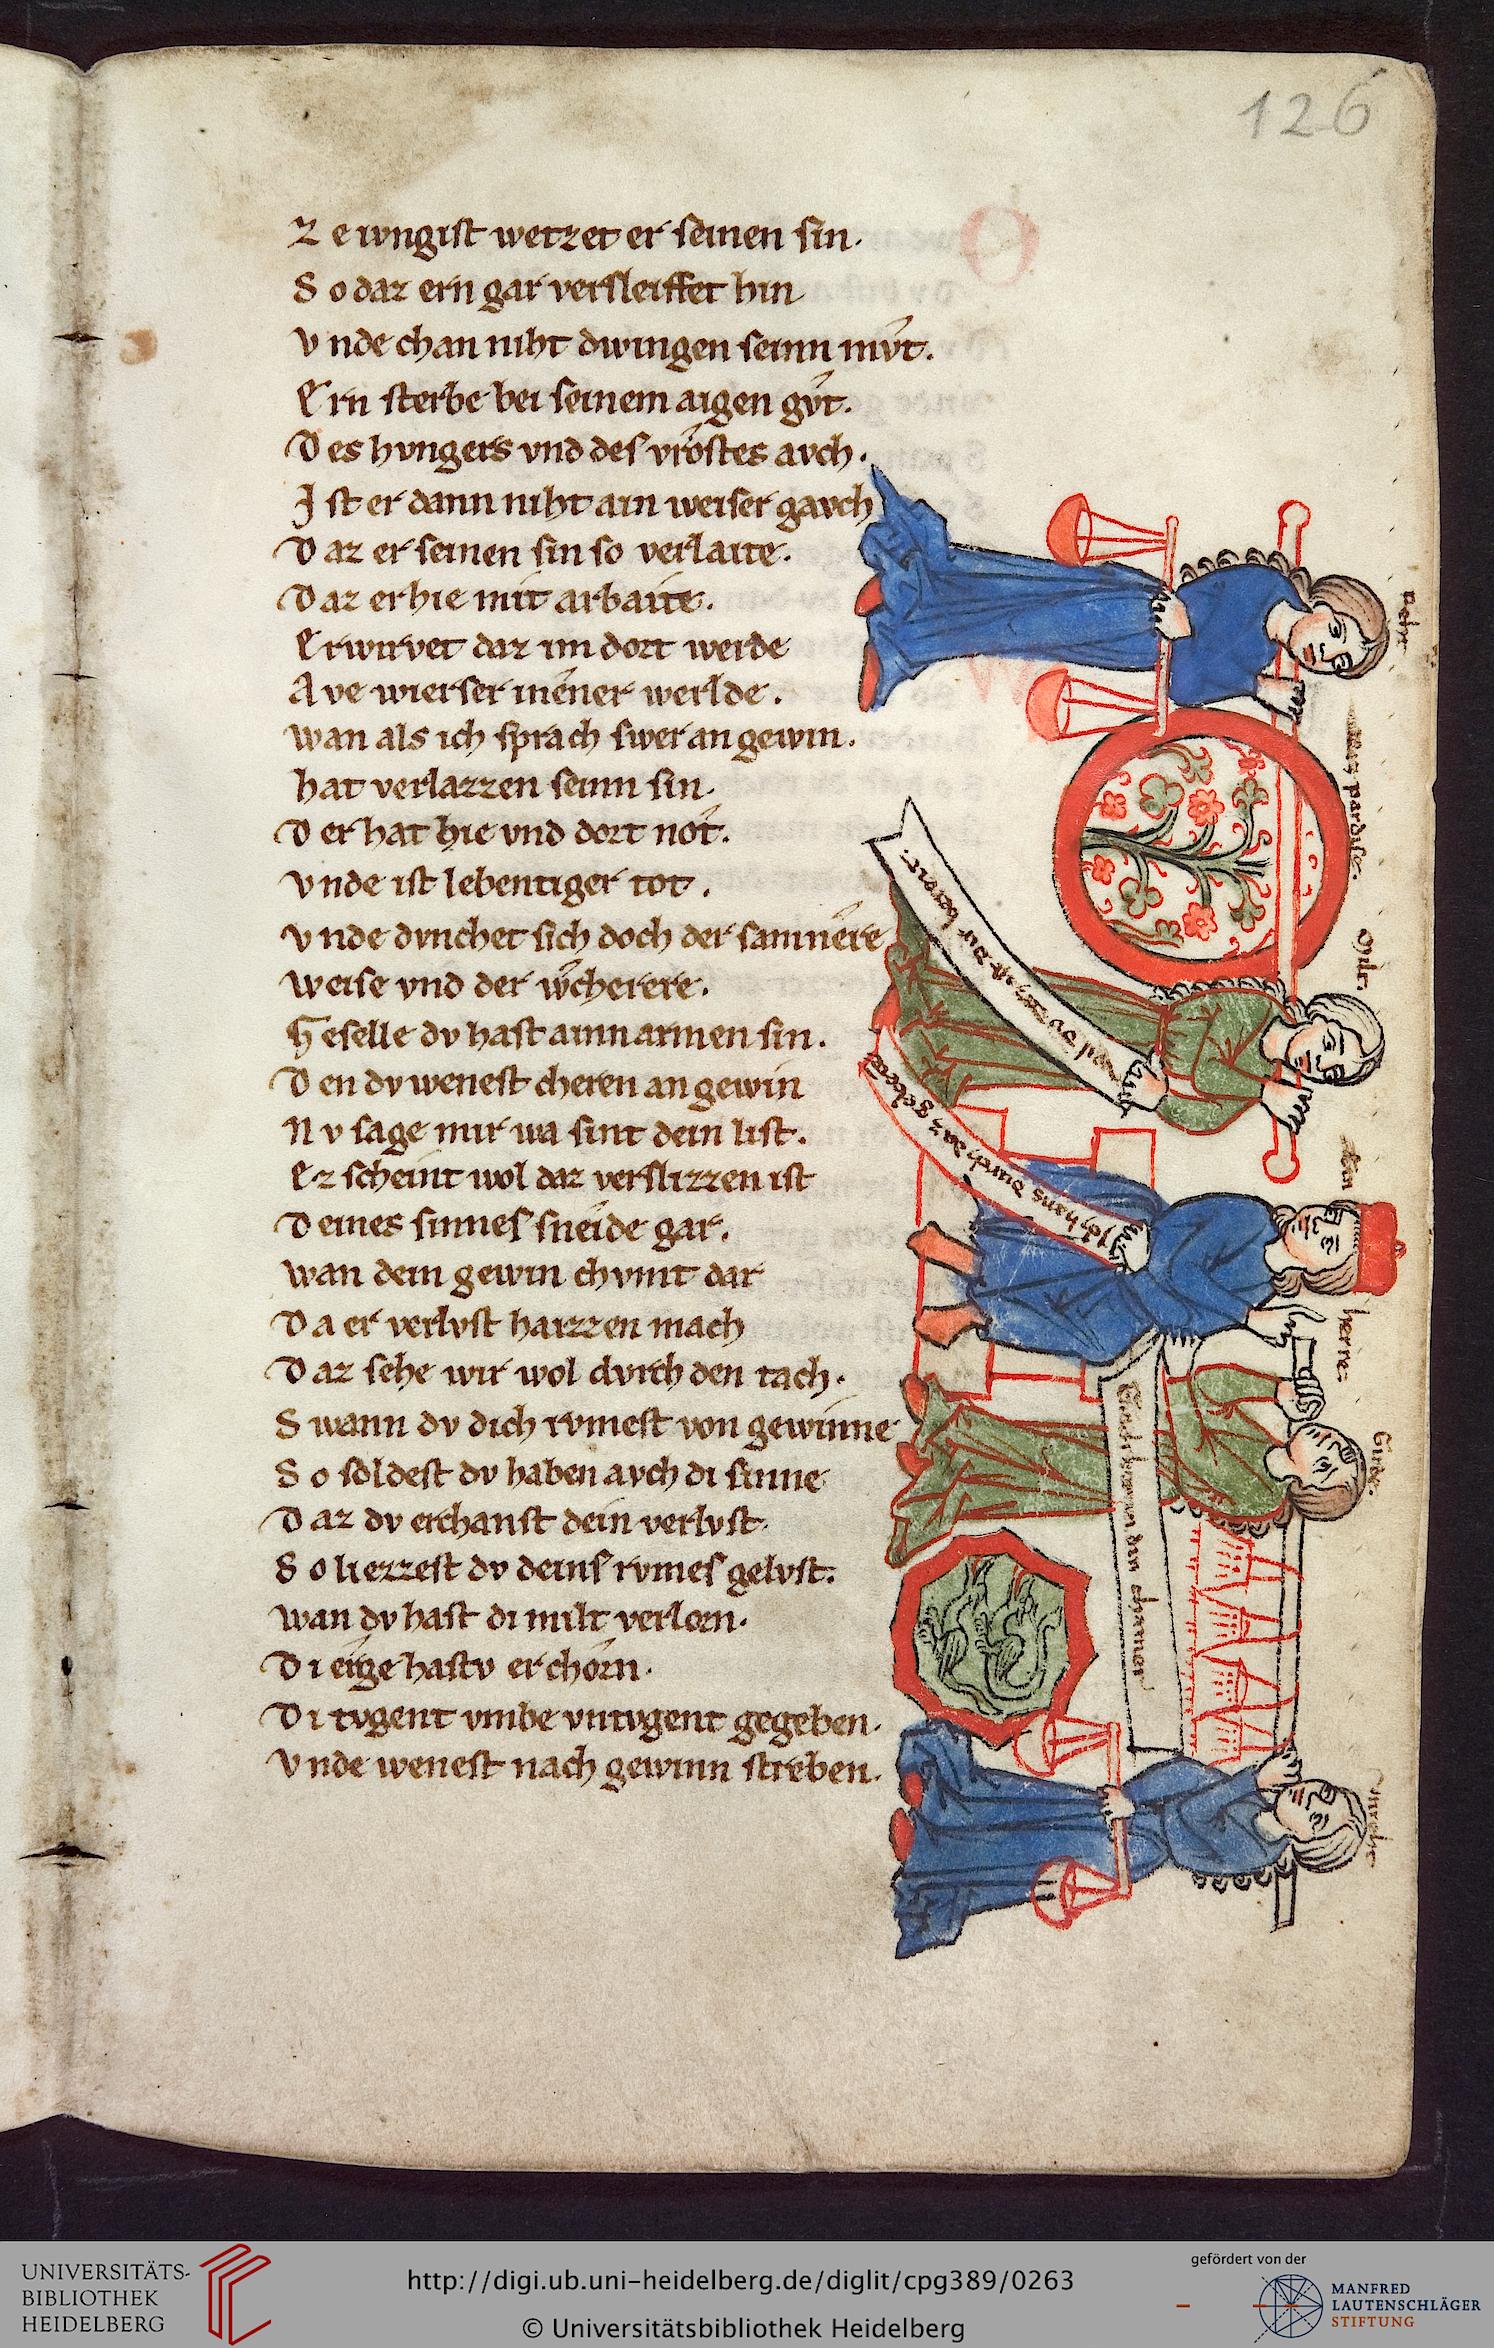 126
Ze ivngist wetzet er seinen sin.
So daz ern gar versleiffet hin
Vnde chan niht dwingen seinn mvͦt.
Ern sterbe bei seinem aigen gvͦt.
Des hvngers vnd des vrostes avch.
Ist er dann niht ain weiser gavch
Daz er seinen sin so verlaite.
Daz er hie mit arbaite.
Erwirvet daz im dort werde
Ave wierser in ener werlde.
Wan als ich sprach swer an gewin.
hat verlazzen seinn sin.
Der hat hie vnd dort not.
Vnde ist lebentiger tot.
Vnde dvnchet sich doch der samnere
Weise vnd der wͦcherere.
Geselle dv hast ainn armen sin.
Den dv wenest cheren an gewin
Nv sage mir wa sint dein list.
Ez scheint wol daz verslizzen ist
Deines sinnes sneide gar.
Wan dein gewin chvmt dar
Da er verlvst haizzen mach
Daz sehe wir wol dvrch den tach.
Swann dv dich rvmest von gewinne
So soldest dv haben avch di sinne
Daz dv erchanst dein verlvst.
So liezzest dv deins rvmes gelvst.
Wan dv hast di milt verlorn.
Di eige hastv erchorn.
Di tvgent vmbe vntvgent gegeben.
Vnde wenest nach gewinn streben.
Reht
Daz pardise.
Milt.
Ich hans durch daz geben
Ein
herre
Girde.
den chamer
Vnreht
UNIVERSITÄTS-
BIBLIOTHEK
HEIDELBERG
http://digi.ub.uni-heidelberg.de/diglit/cpg389/0263
© Universitätsbibliothek Heidelberg
gefördert von der
MANFRED
LAUTENSCHLÄGER
STIFTUNG